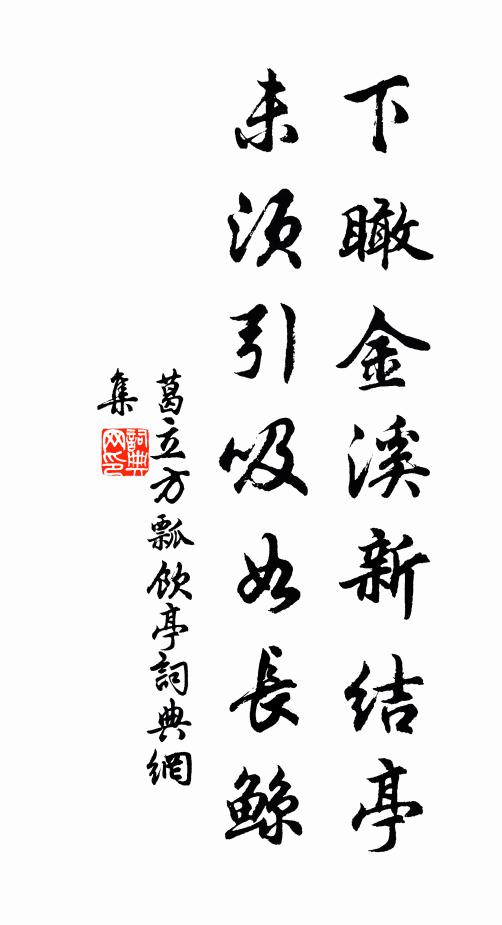 下瞰金溪新結亭
未須引吸如長鯨
葛立方瓢飲亭詞典網
集
詞典
网印